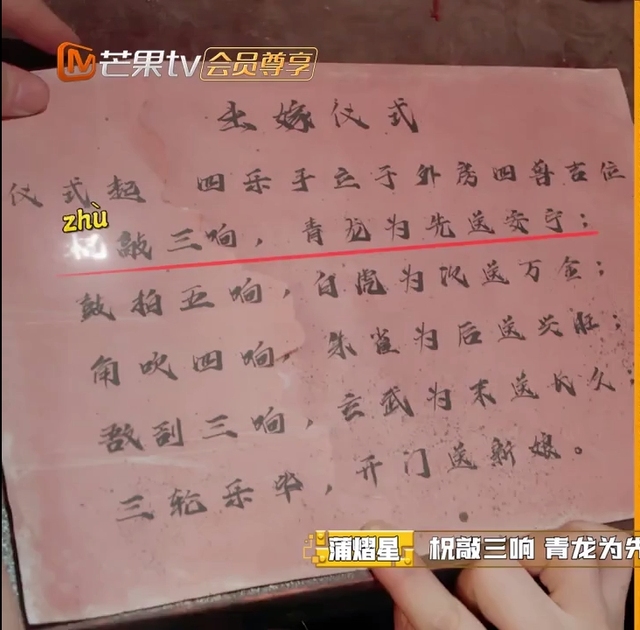 芒果tv 会员尊享
出嫁仪式
仪式起 四乐手立于外房四兽吉位
zhù
柷敲三响，青龙为先送安宁；
鼓拍五响，白虎为次送万金；
角吹四响，朱雀为后送兴旺；
敔刮三响，玄武为末送长久；
三轮乐毕，开门送新娘。
蒲熠星 柷敲三响 青龙为先